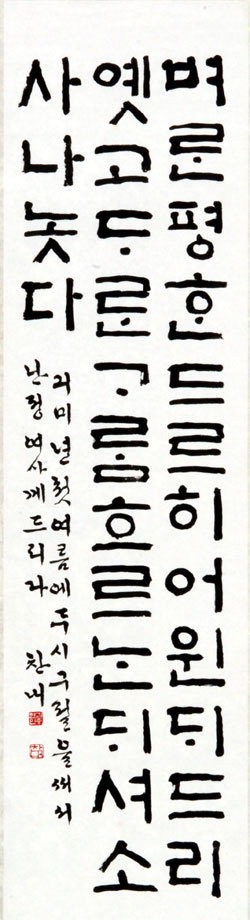 벼ᄅᆞᆫ평ᄒᆞᆫ드르히어윈ᄃᆡ드리
옛고ᄃᆞᄅᆞᆫᄀᆞᄅᆞᆷ흐르ᄂᆞᆫᄃᆡ셔소
사나놋다
긔미년 첫여름에 두시 구절을 써서
난정 여사께 드리다 찬내